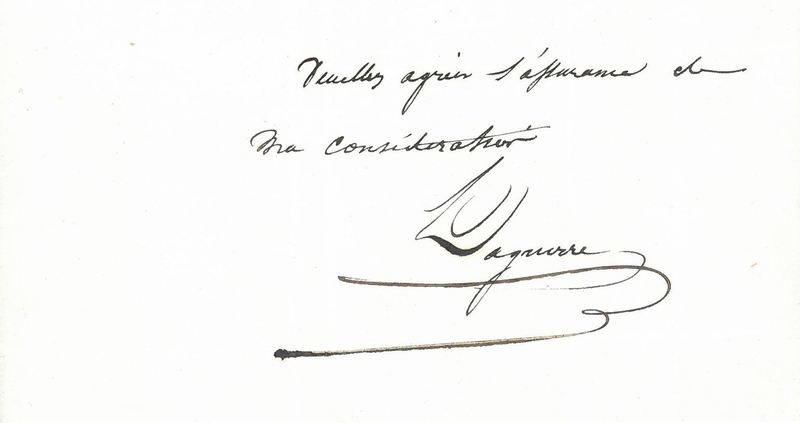 Veuillez agréer l'assurance de
ma considération
Daguerre